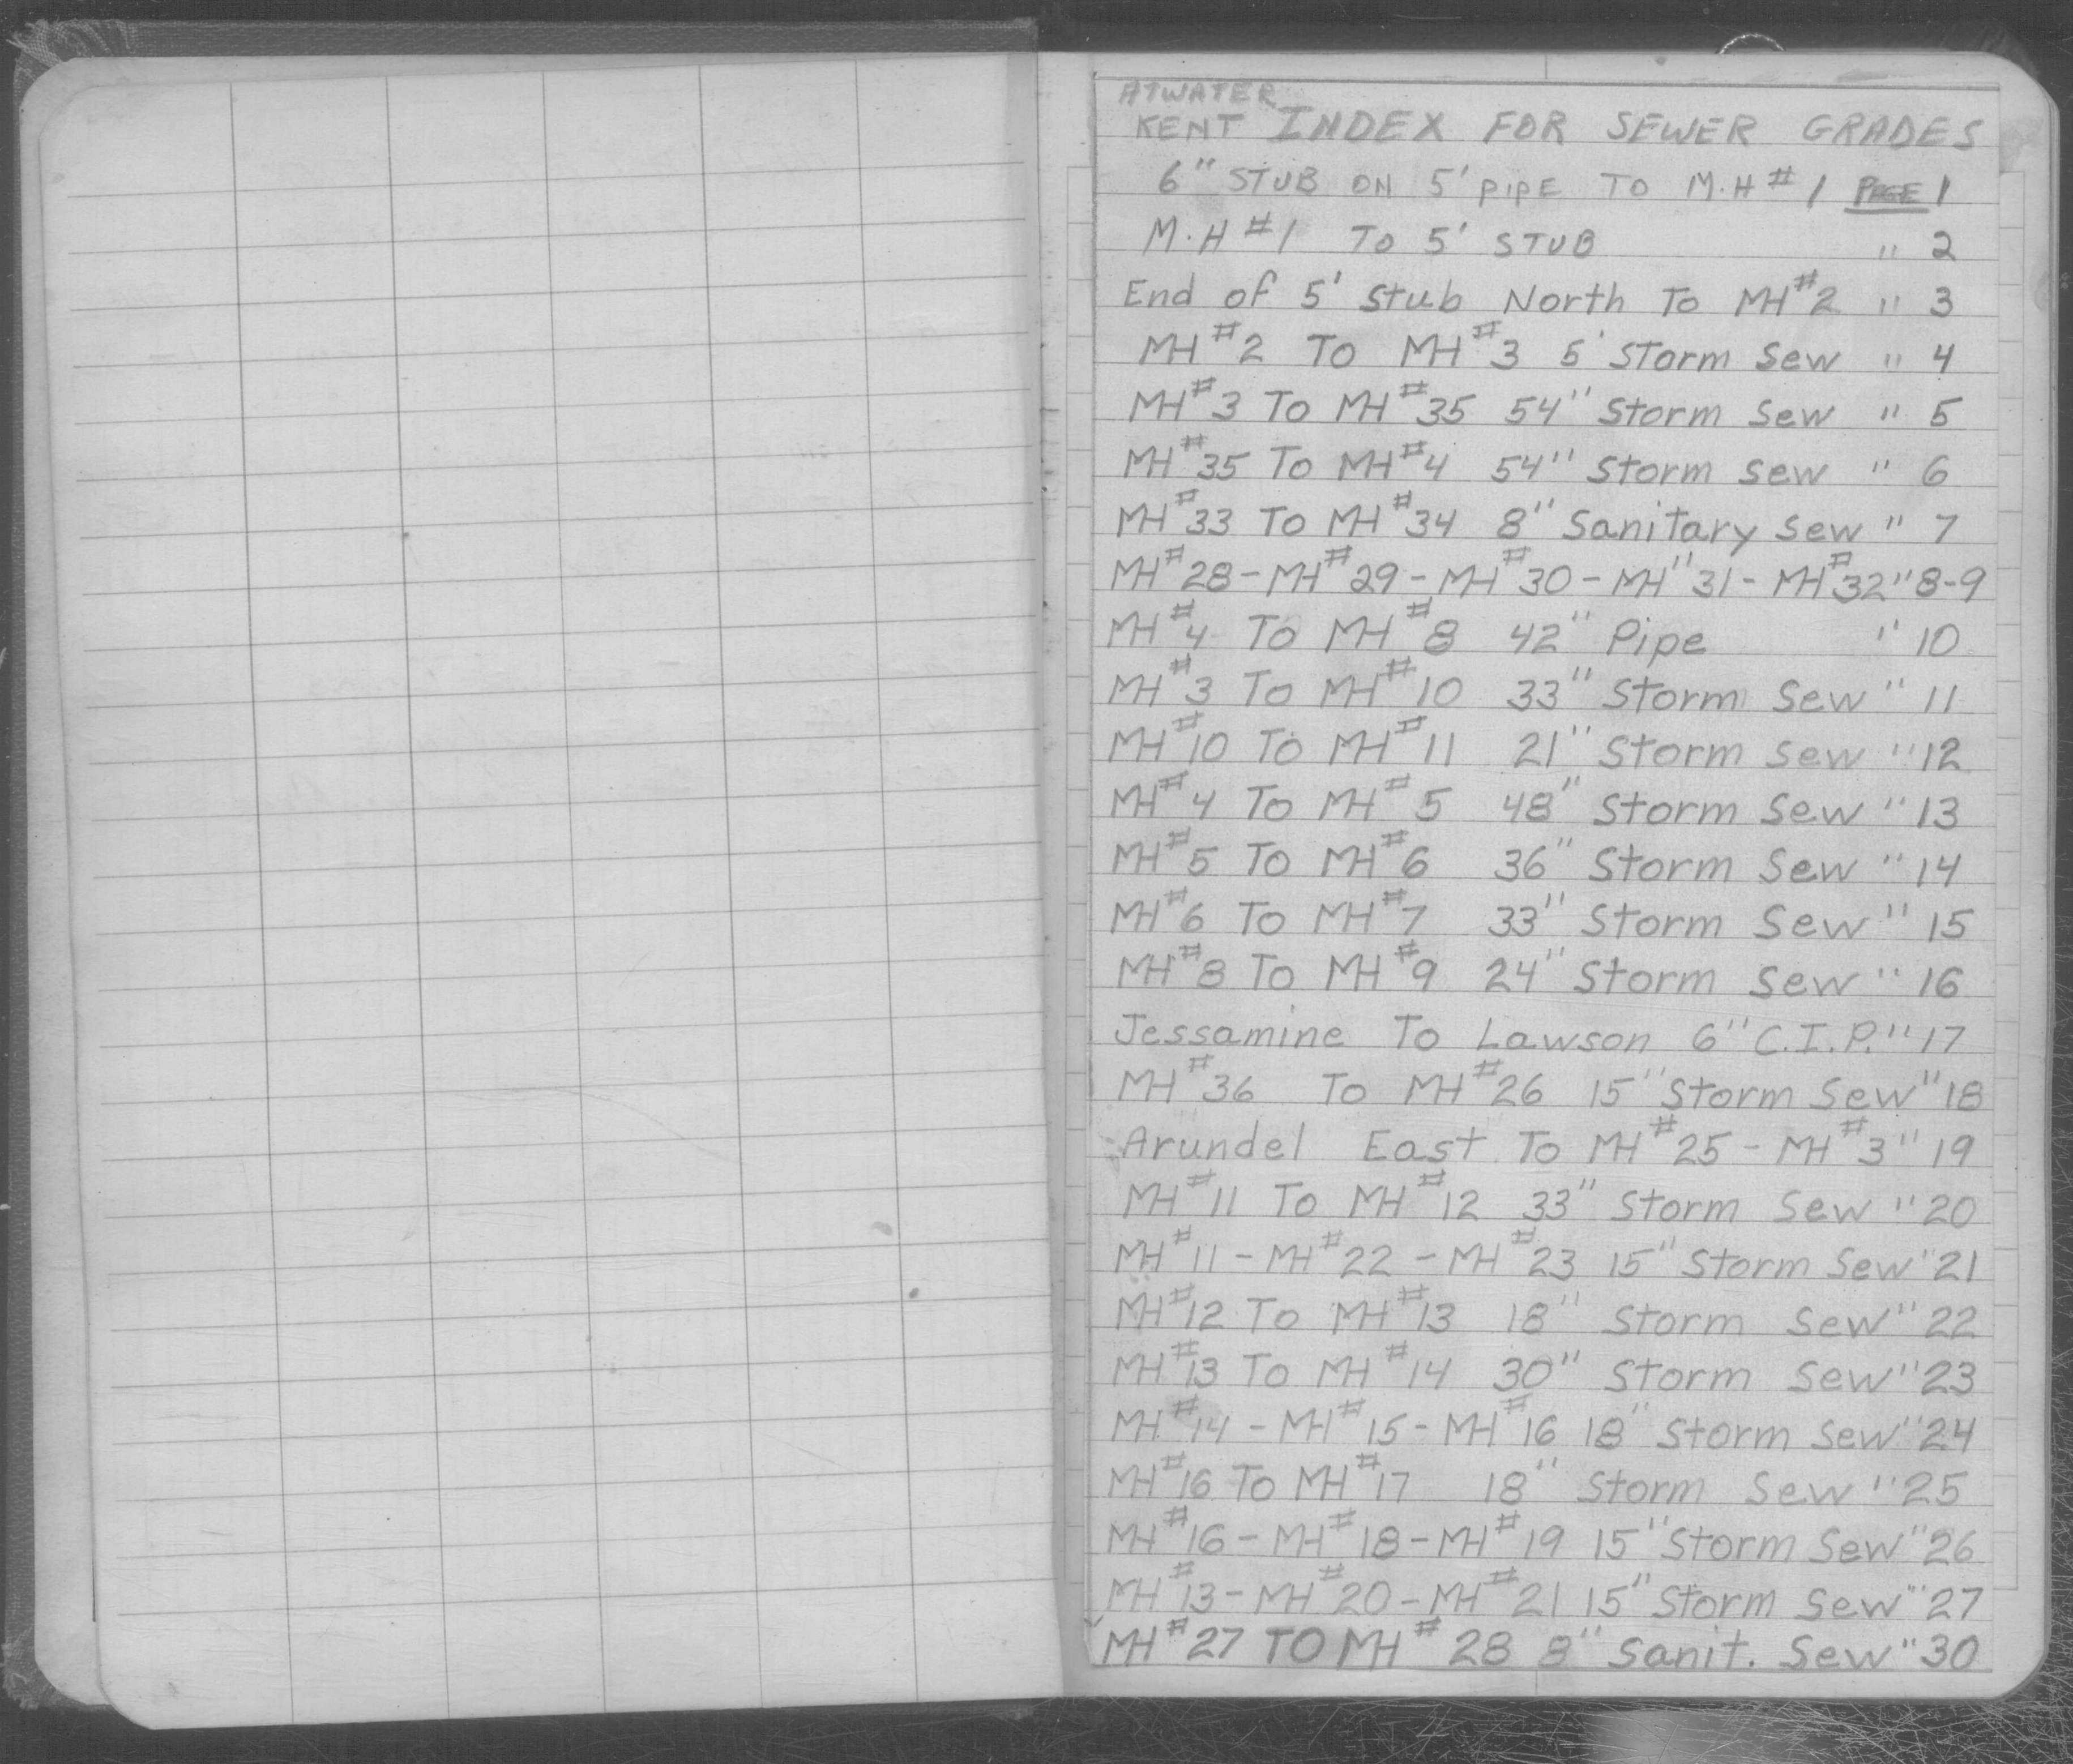 ATWATER
KENT INDEX FOR SEWER GRADES
6" STUB ON 5' PIPE TO M.H # 1 PAGE 1
M.H #1 TO 5' STUB " 2
End of 5' Stub North To MH #2 " 3
MH #2 To MH #3 5' Storm Sew " 4
MH #3 To MH #35 54" Storm Sew " 5
MH #35 To MH #4 54" Storm Sew " 6
MH #33 To MH #34 8" Sanitary Sew " 7
MH #28 - MH #29 - MH #30 - MH "31 - MH #32 " 8-9
MH #4 To MH #8 42" Pipe " 10
MH #3 To MH #10 33" Storm Sew " 11
MH #10 To MH #11 21" Storm Sew " 12
MH #4 To MH #5 48" Storm Sew " 13
MH #5 To MH #6 36" Storm Sew " 14
MH #6 To MH #7 33" Storm Sew " 15
MH #8 To MH #9 24" Storm Sew " 16
Jessamine To Lawson 6" C.I.P. " 17
MH #36 To MH #26 15" Storm Sew " 18
Arundel East To MH #25 - MH #3 " 19
MH #11 To MH #12 33" Storm Sew " 20
MH #11 - MH #22 - MH #23 15" Storm Sew " 21
MH #12 To MH #13 18" Storm Sew " 22
MH #13 To MH #14 30" Storm Sew " 23
MH #14 - MH #15 - MH #16 18" Storm Sew " 24
MH #16 To MH #17 18" Storm Sew " 25
MH #16 - MH #18 - MH #19 15" Storm Sew " 26
MH #13 - MH #20 - MH #21 15" Storm Sew " 27
MH #27 TO MH #28 8" Sanit. Sew " 30